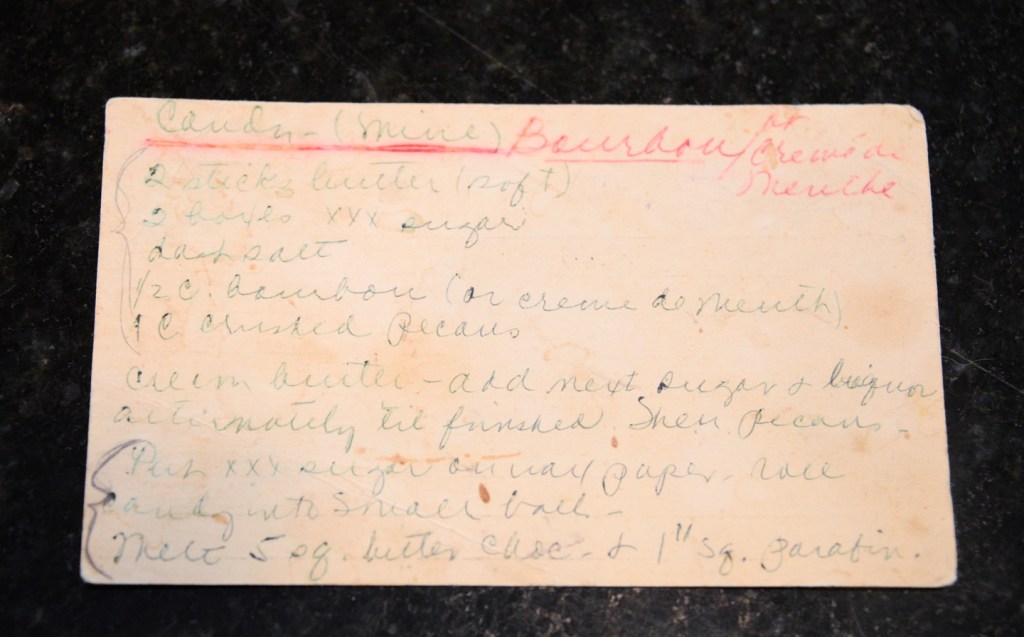 Candy - (mine) Bourbon / or Creme de Menthe
2 sticks butter (soft)
2 boxes xxx sugar
dash salt
1/2 c. bourbon (or creme de menth)
1 c. crushed pecans
cream butter - add next sugar & liquor
alternately til finished. Then pecans -
Put xxx sugar on wax paper. roll
candy into small balls -
Melt 5 sq. bitter choc. & 1" sq. parafin.